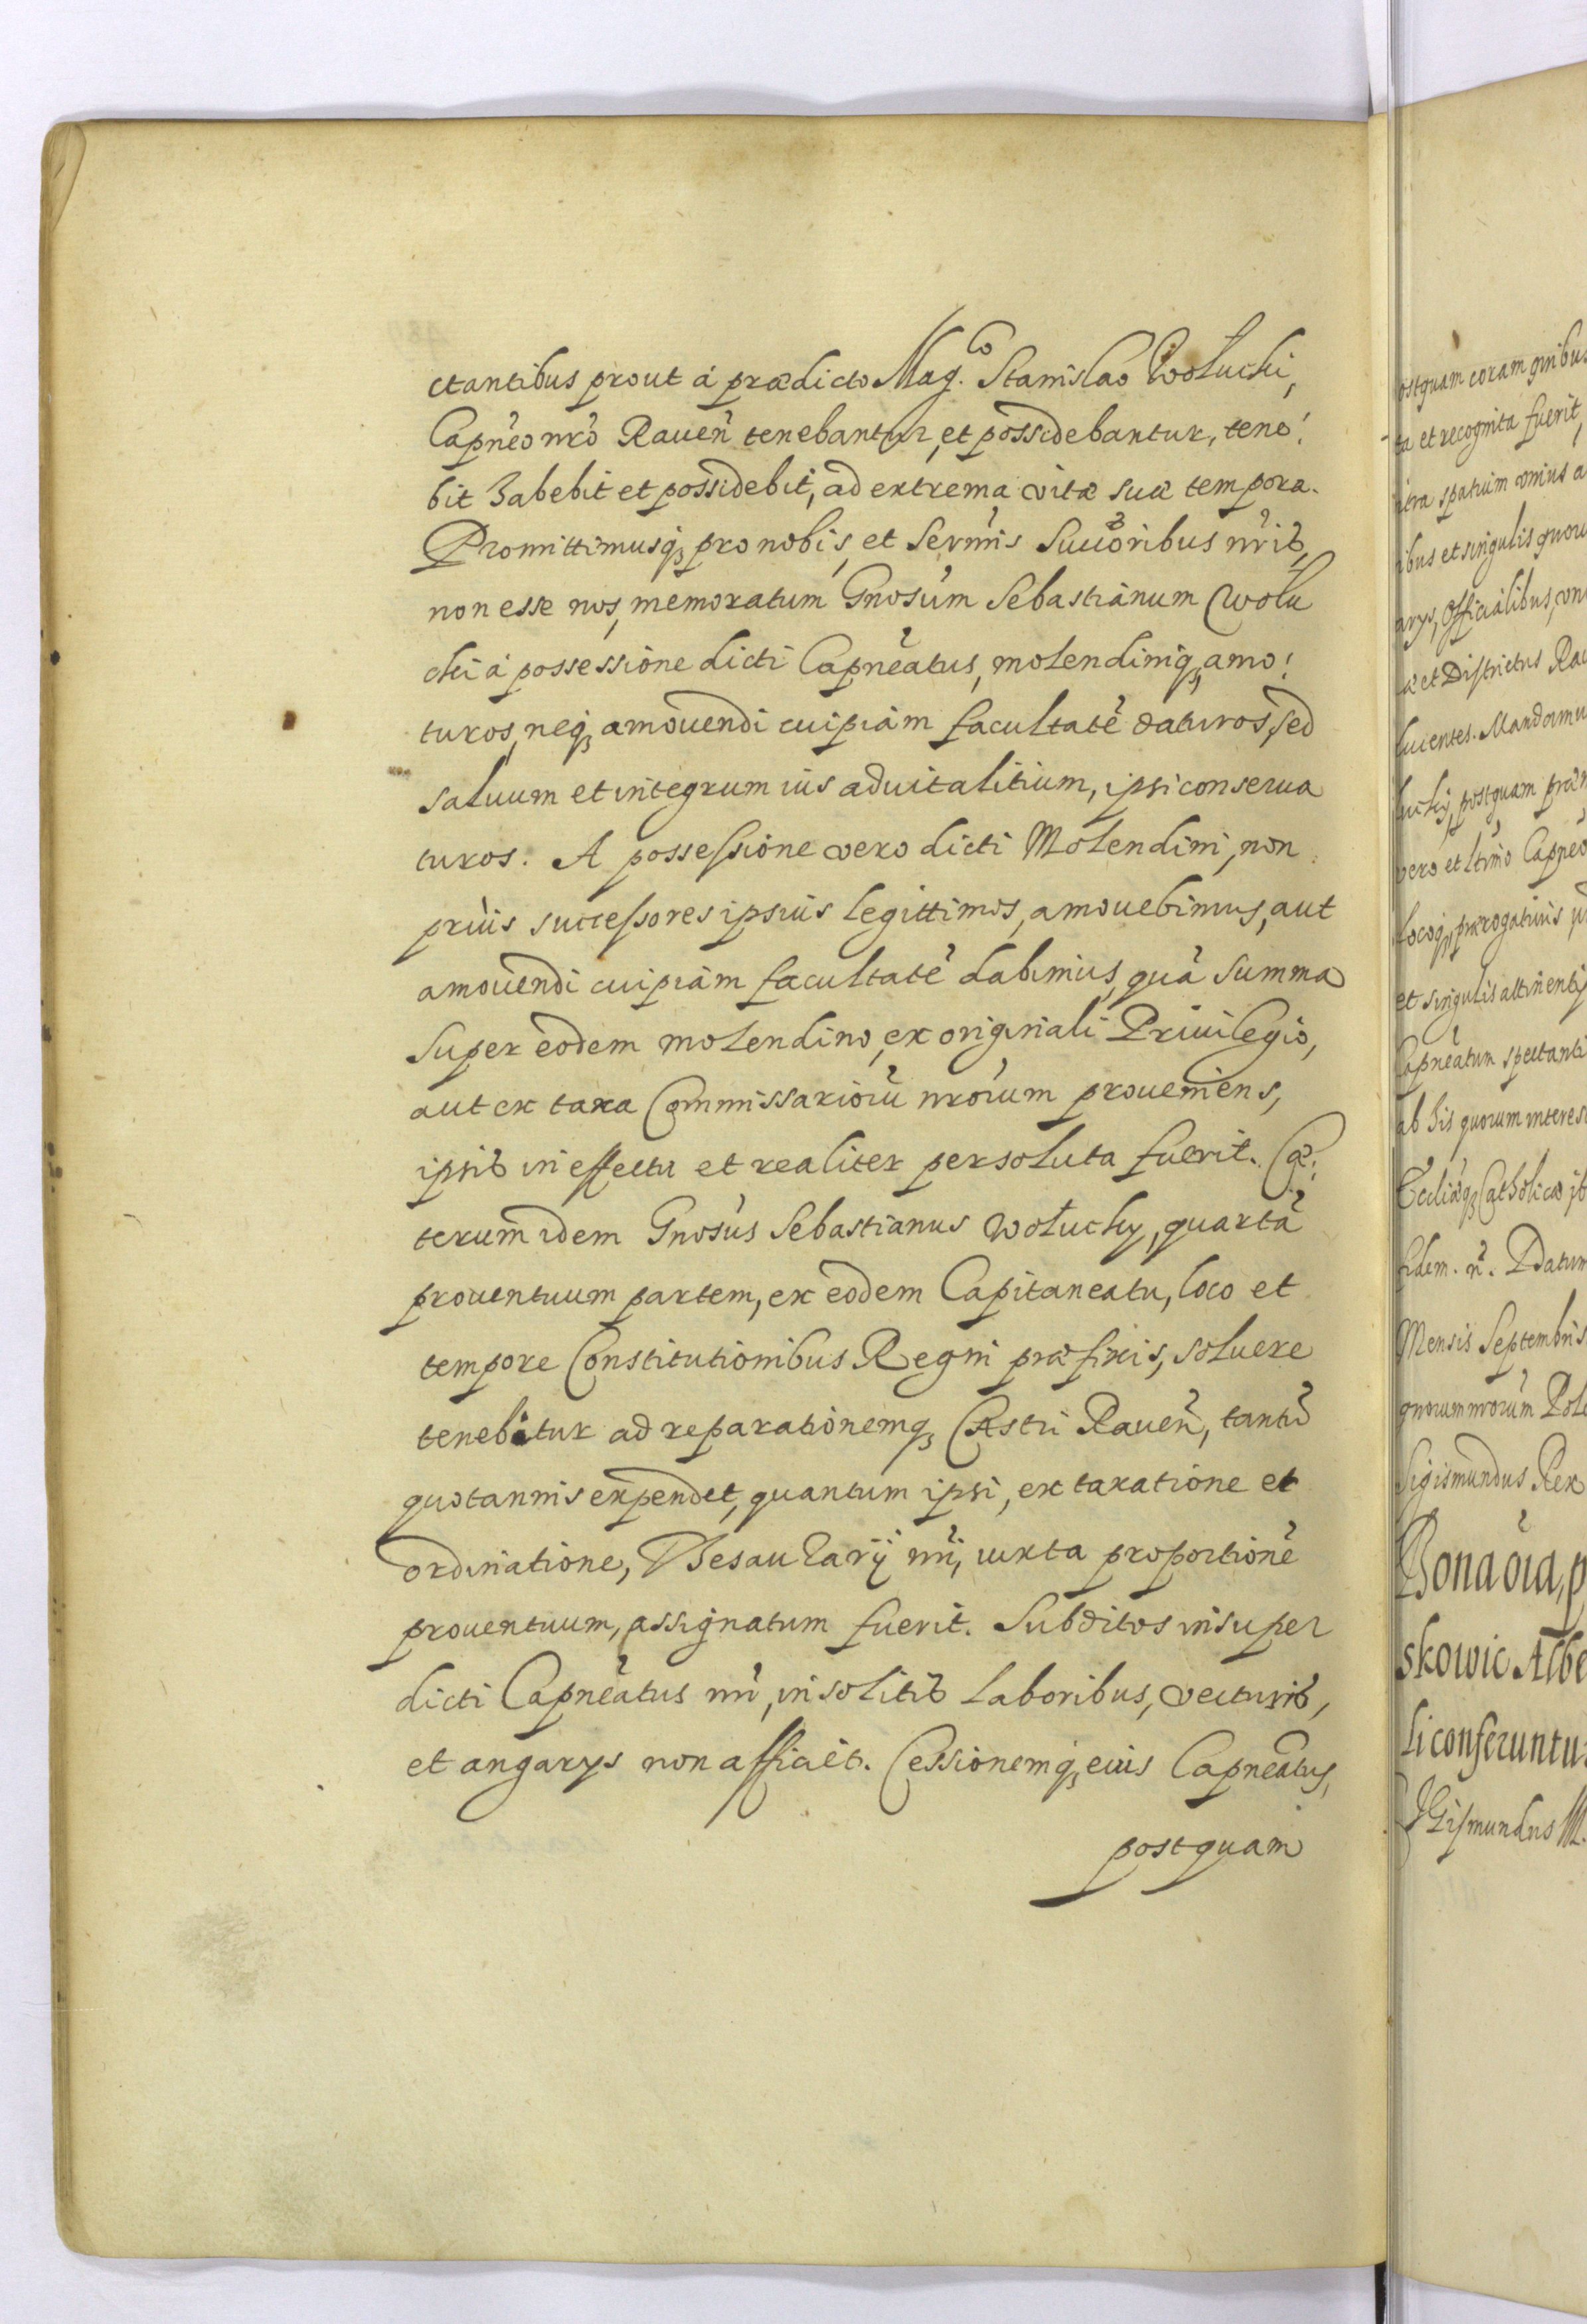 ctantibus prout á prædicto Mag.co Stanislao Wołuchi,
Capneo nro Rauen tenebantur, et possidebantur, tene:
bit habebit et possidebit, ad extrema vitæ suæ tempora.
Promittimusq, pro nobis, et Sermis Succoribus nris,
non esse nos, memoratum Gnosum Sebastianum Wołu
chi á possessione dicti Capneatus, molendiniq, amo:
turos, neq, amouendi cuipiam facultatē daturos, sed
saluum et integrum ius aduitalitium, ipsi conserua
turos. A possessione vero dicti Molendini, non
priùs successores ipsius legittimos, amouebimus, aut
amouendi cuipiam facultatē dabimus, quā summa
super eodem molendino, ex originali Priuilegio,
aut ex taxa Commissariorū nrorum proueniens,
ipsis in effectu et realiter persoluta fuerit. Cæ:
terum idem Gnosus Sebastianus Wołuchy, quartā
prouentuum partem, ex eodem Capitaneatu, loco et
tempore Constitutionibus Regni præfixis, soluere
tenebitur ad reparationemq, Castri Rauen, tantū
quotannis expendet, quantum ipsi, ex taxatione et
ordinatione, Thesaurarij nri, iuxta proportionē
prouentuum, assignatum fuerit. Subditos insuper
dicti Capneatus nri, insolitis laboribus, vecturis,
et angarys non afficiet. Cessionemq, eius Capneatus,
postquam
ostquam coram gnibus
ta et recognita fuerit,
intra spatium omius a
ibus et singulis quoru
arys, Officialibus, con
æ et Districtus Rau
lucentes. Mandamu
luchy, postquam præm
vero et ltimo Capneo
locoq, prærogatiuis
et singulis attinentij
Capneatum spectanti
ab his quorum interes
Eccliæq, Catholicæ
fidem. n. Datum
Mensis Septembris
gnorum nrorum Polo
Sigismundus Rex
Bona oia, p
skowic Albe
li conferuntu
Sigismundus